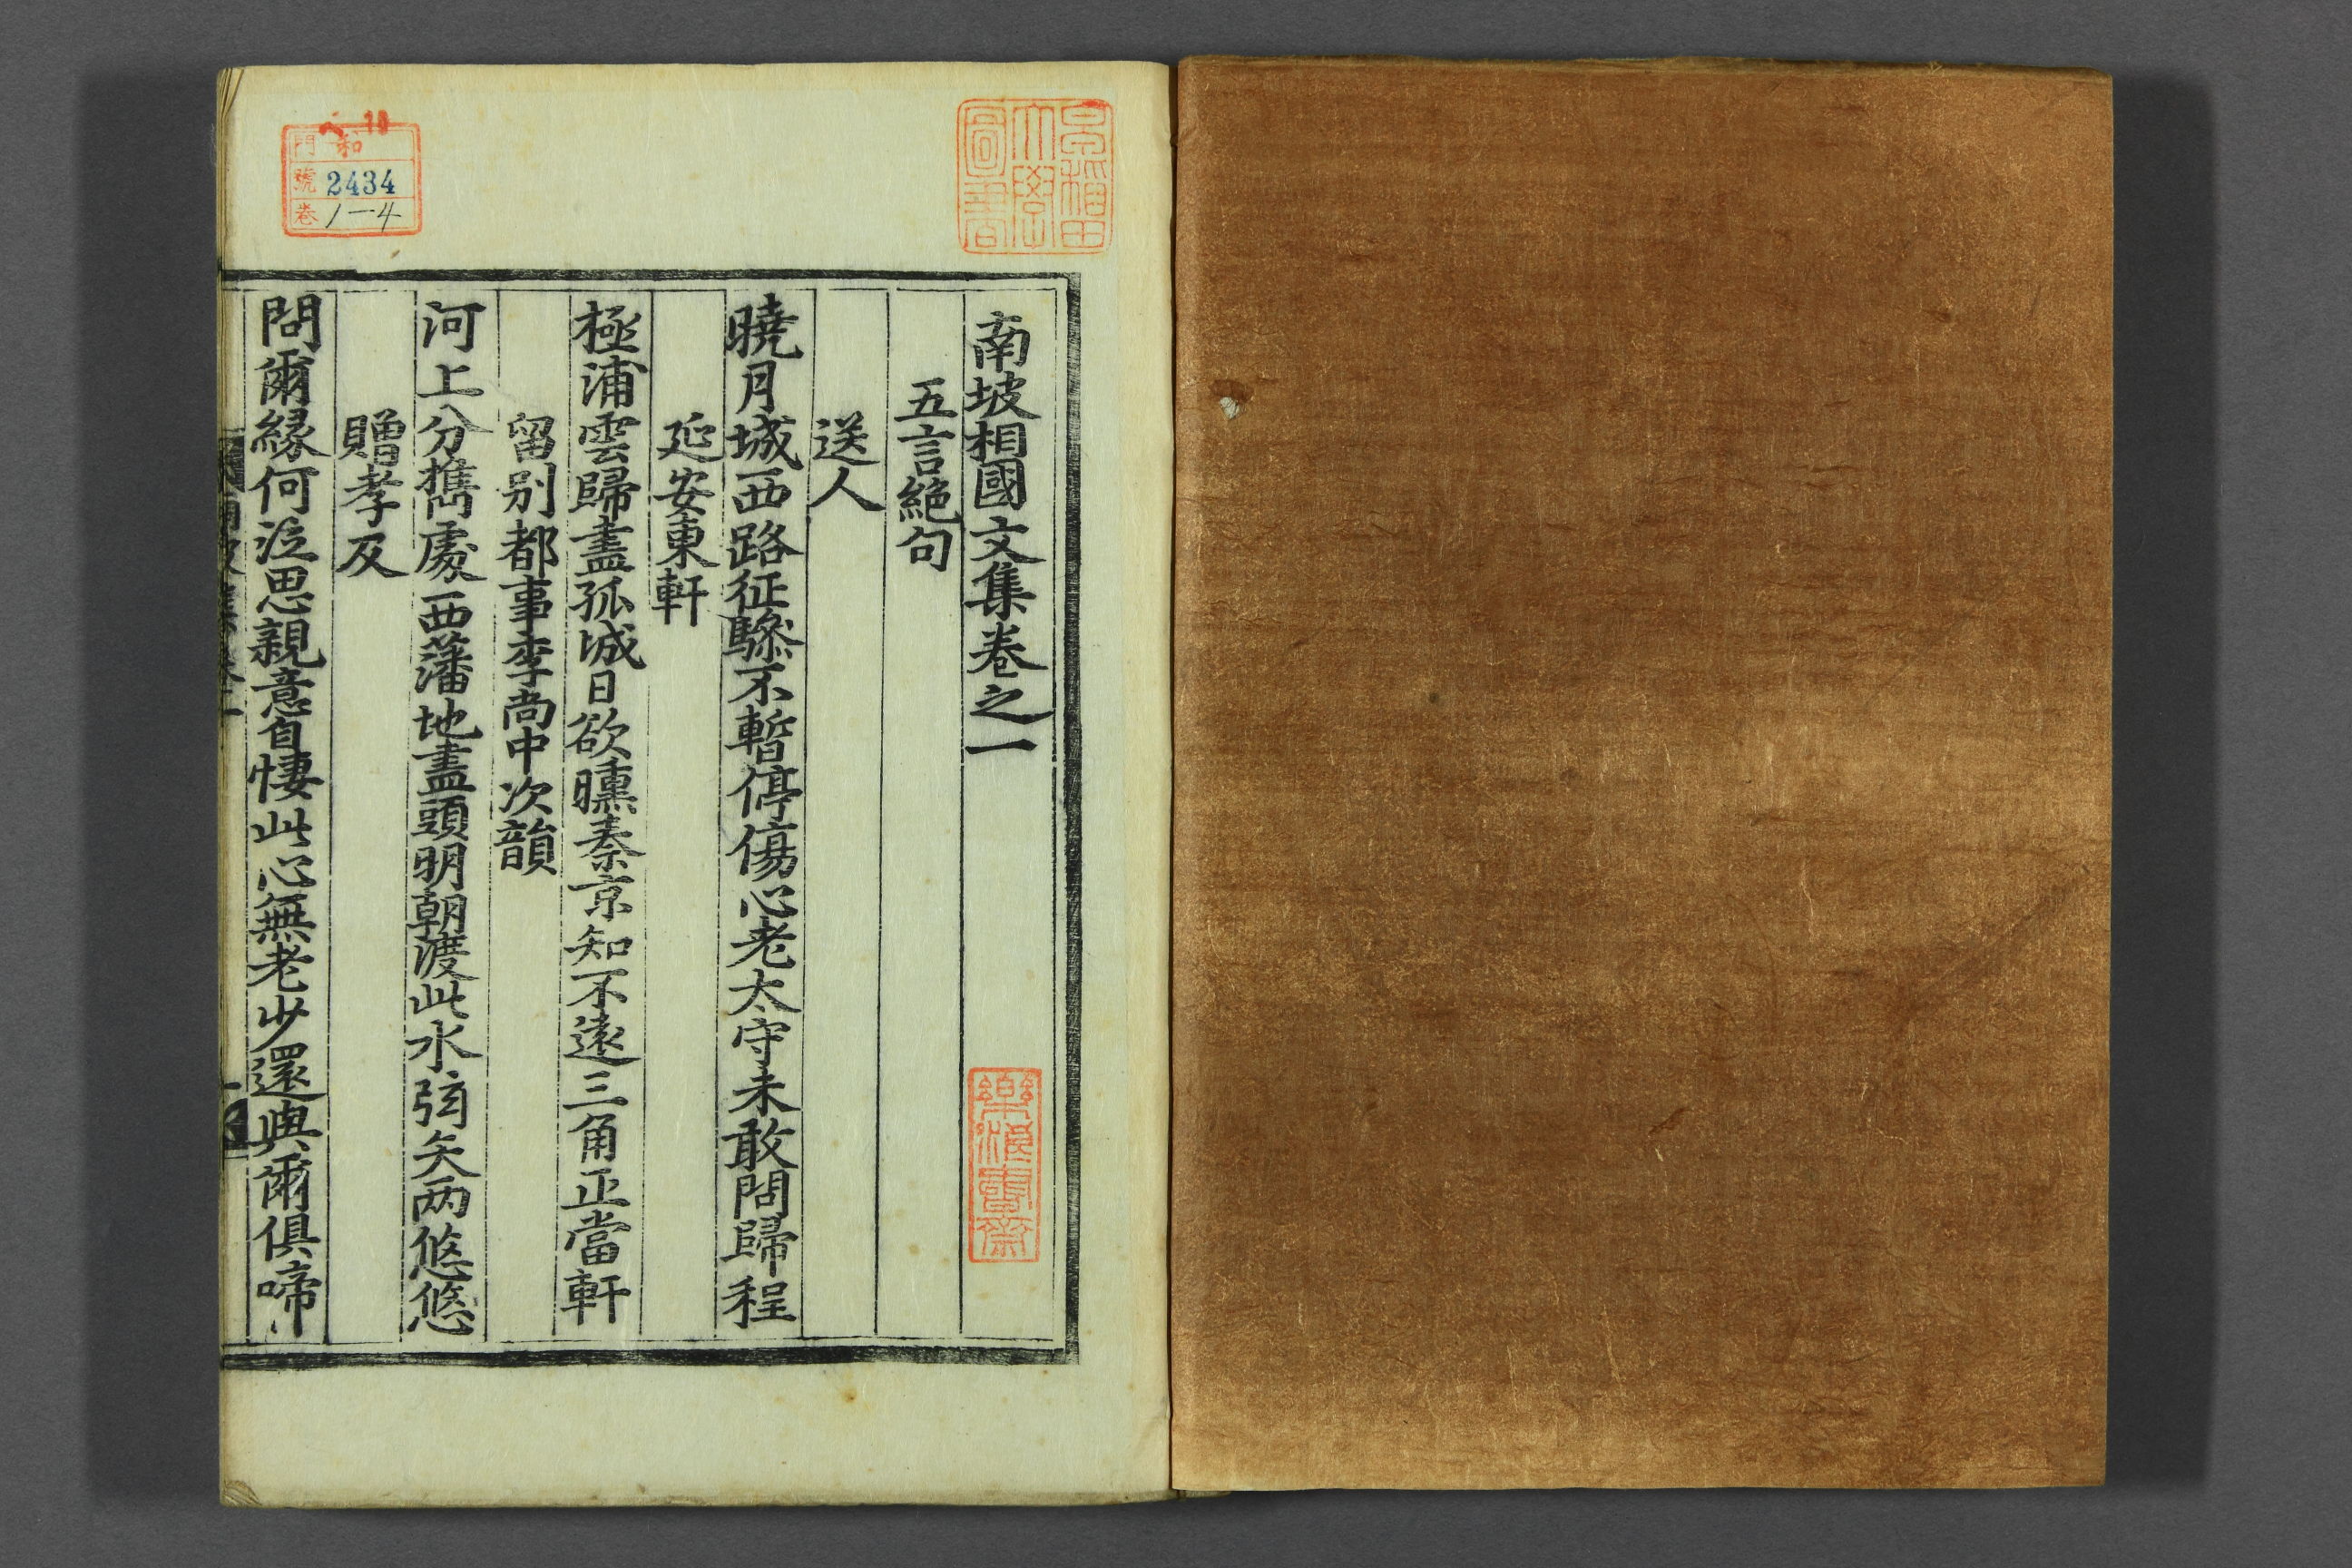 南坡相國文集卷之一
五言絕句
送人
曉月城西路征驂不暫停傷心老太守未敢問歸程
延安東軒
極浦雲歸盡孤城日欲曛秦京知不遠三角正當軒
留別都事李尙中次韻
河上分携處西藩地盡頭明朝渡此水弦矢两悠悠
贈孝及
問爾緣何泣思親意自悽此心無老少還與爾俱啼
早稻田大學圖書
樂浪書齋
門 和
號 2434
卷 1-4